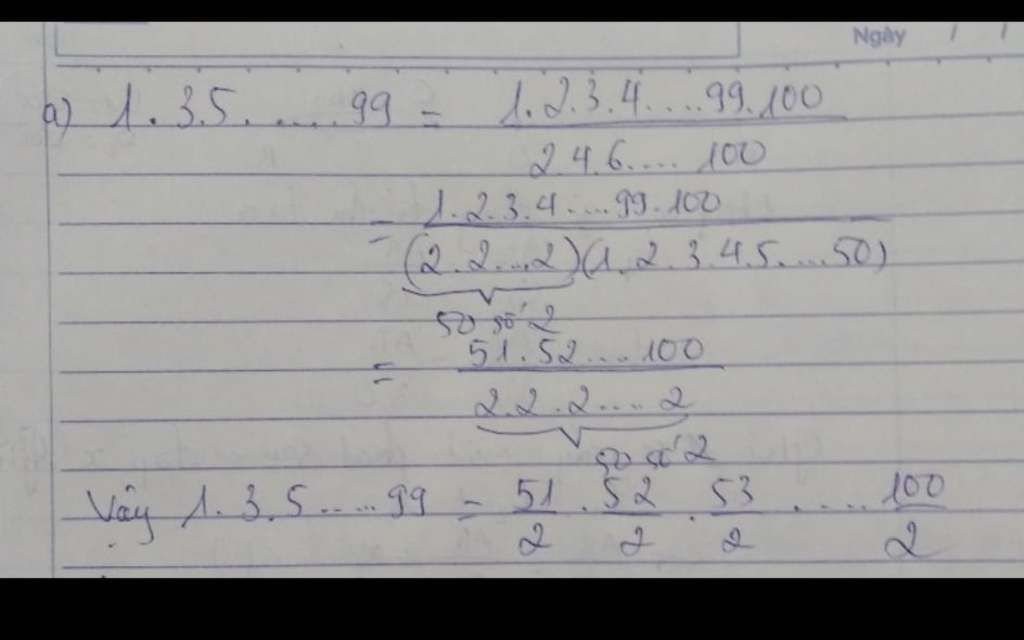 Ngày / /
a) 1.3.5.....99 = 1.2.3.4....99.100
2.4.6.... 100
= 1.2.3.4....99.100
(2.2...2)(1.2.3.4.5....50)
50 số 2
= 51.52...100
2.2.2....2
50 số 2
Vậy 1.3.5.....99 = 51/2 . 52/2 . 53/2 ..... 100/2